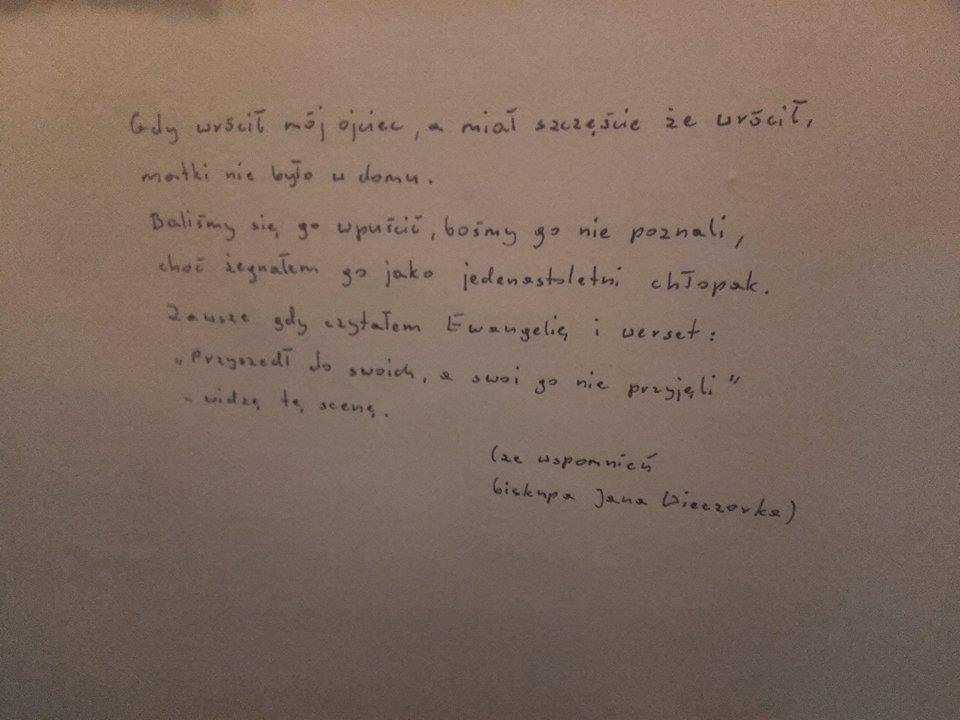 Gdy wrócił mój ojciec, a miał szczęście że wrócił,
matki nie było w domu.
Baliśmy się go wpuścić, bośmy go nie poznali,
choć żegnałem go jako jedenastoletni chłopak.
Zawsze gdy czytałem Ewangelię i werset:
„Przyszedł do swoich, a swoi go nie przyjęli"
- widzę tę scenę.
(ze wspomnień
biskupa Jana Wieczorka)